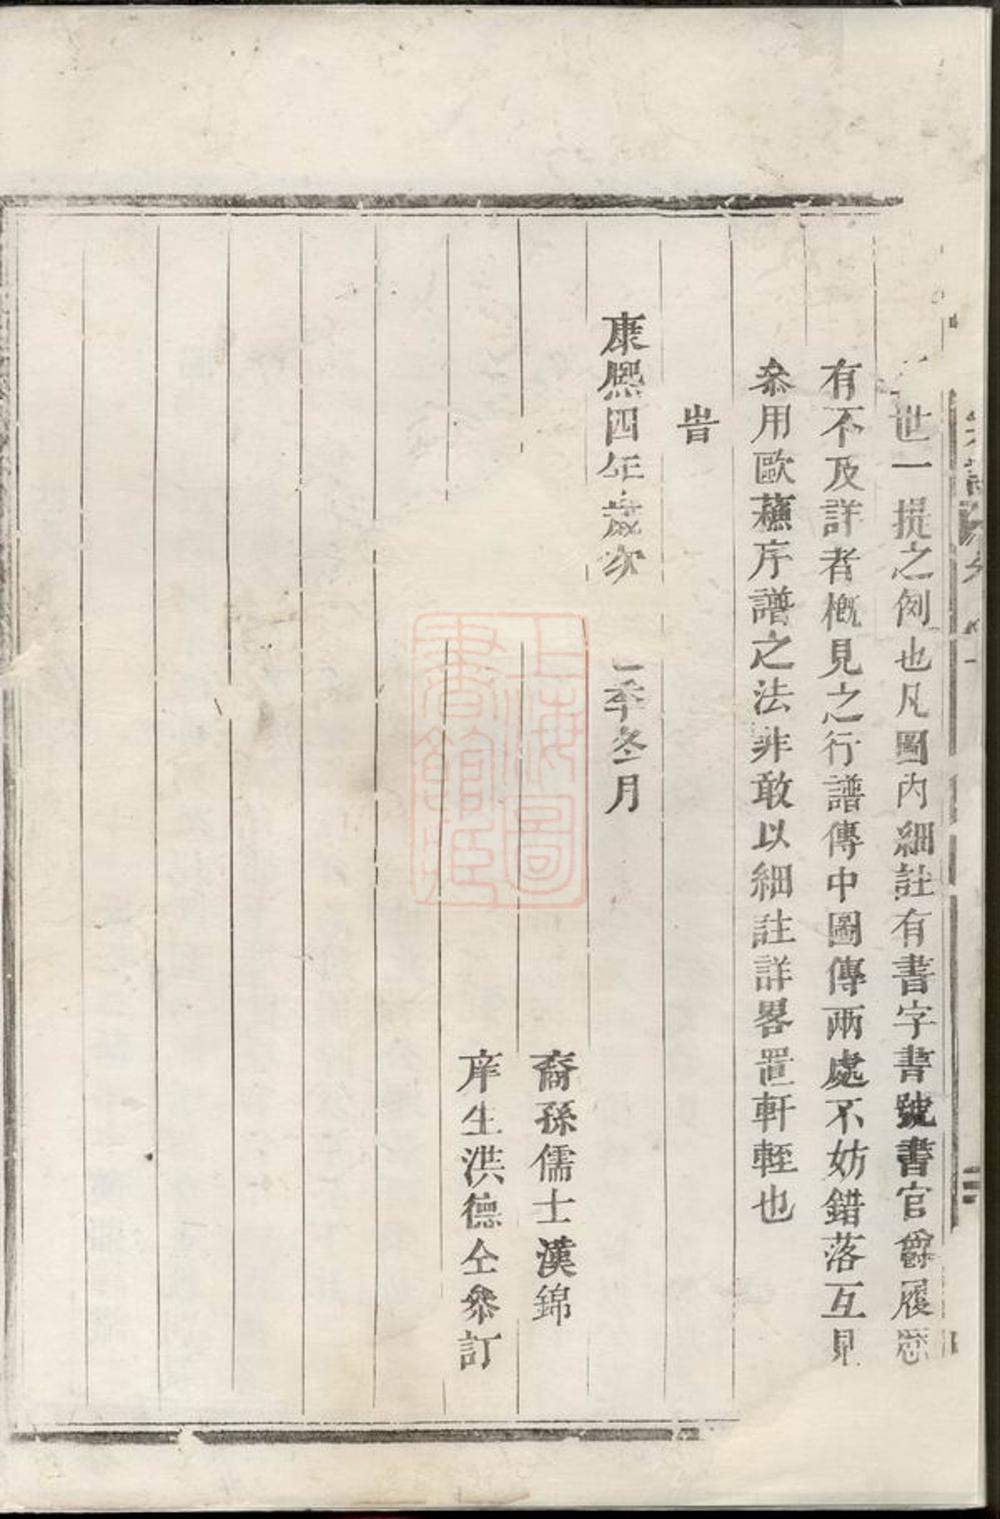 世一提之例也凡圖内細註有書字書號書官爵履歷
有不及詳者槪見之行譜傳中圖傳兩處不妨錯落互見
叅用歐蘇序譜之法非敢以細註詳畧置軒輊也
旹
康熙四年歲次季冬月
裔孫儒士漢錦
庠生洪德仝叅訂
上海圖書館藏